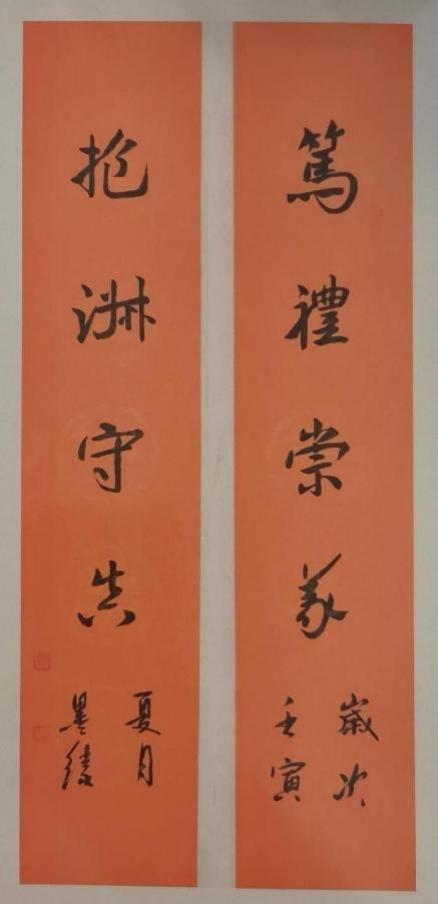 篤禮崇義
歲次
壬寅
抱守真
夏月
墨